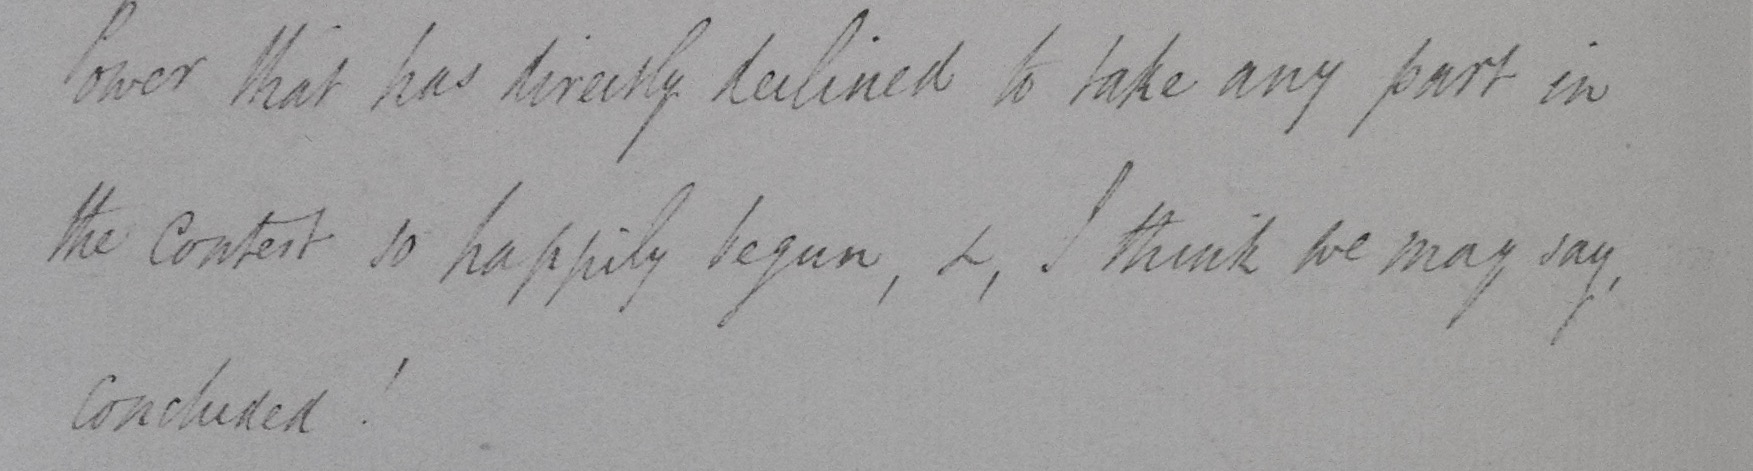 Power that has directly declined to take any part in
the Contest so happily begun, &, I think we may say,
concluded!